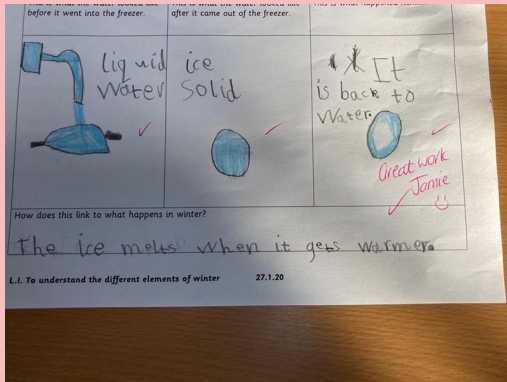 before it went into the freezer.
after it came out of the freezer.
liquid
water
ice
solid
It
is back to
water.
Great work
Jamie
How does this link to what happens in winter?
The ice melts when it gets warmer.
L.I. To understand the different elements of winter
27.1.20